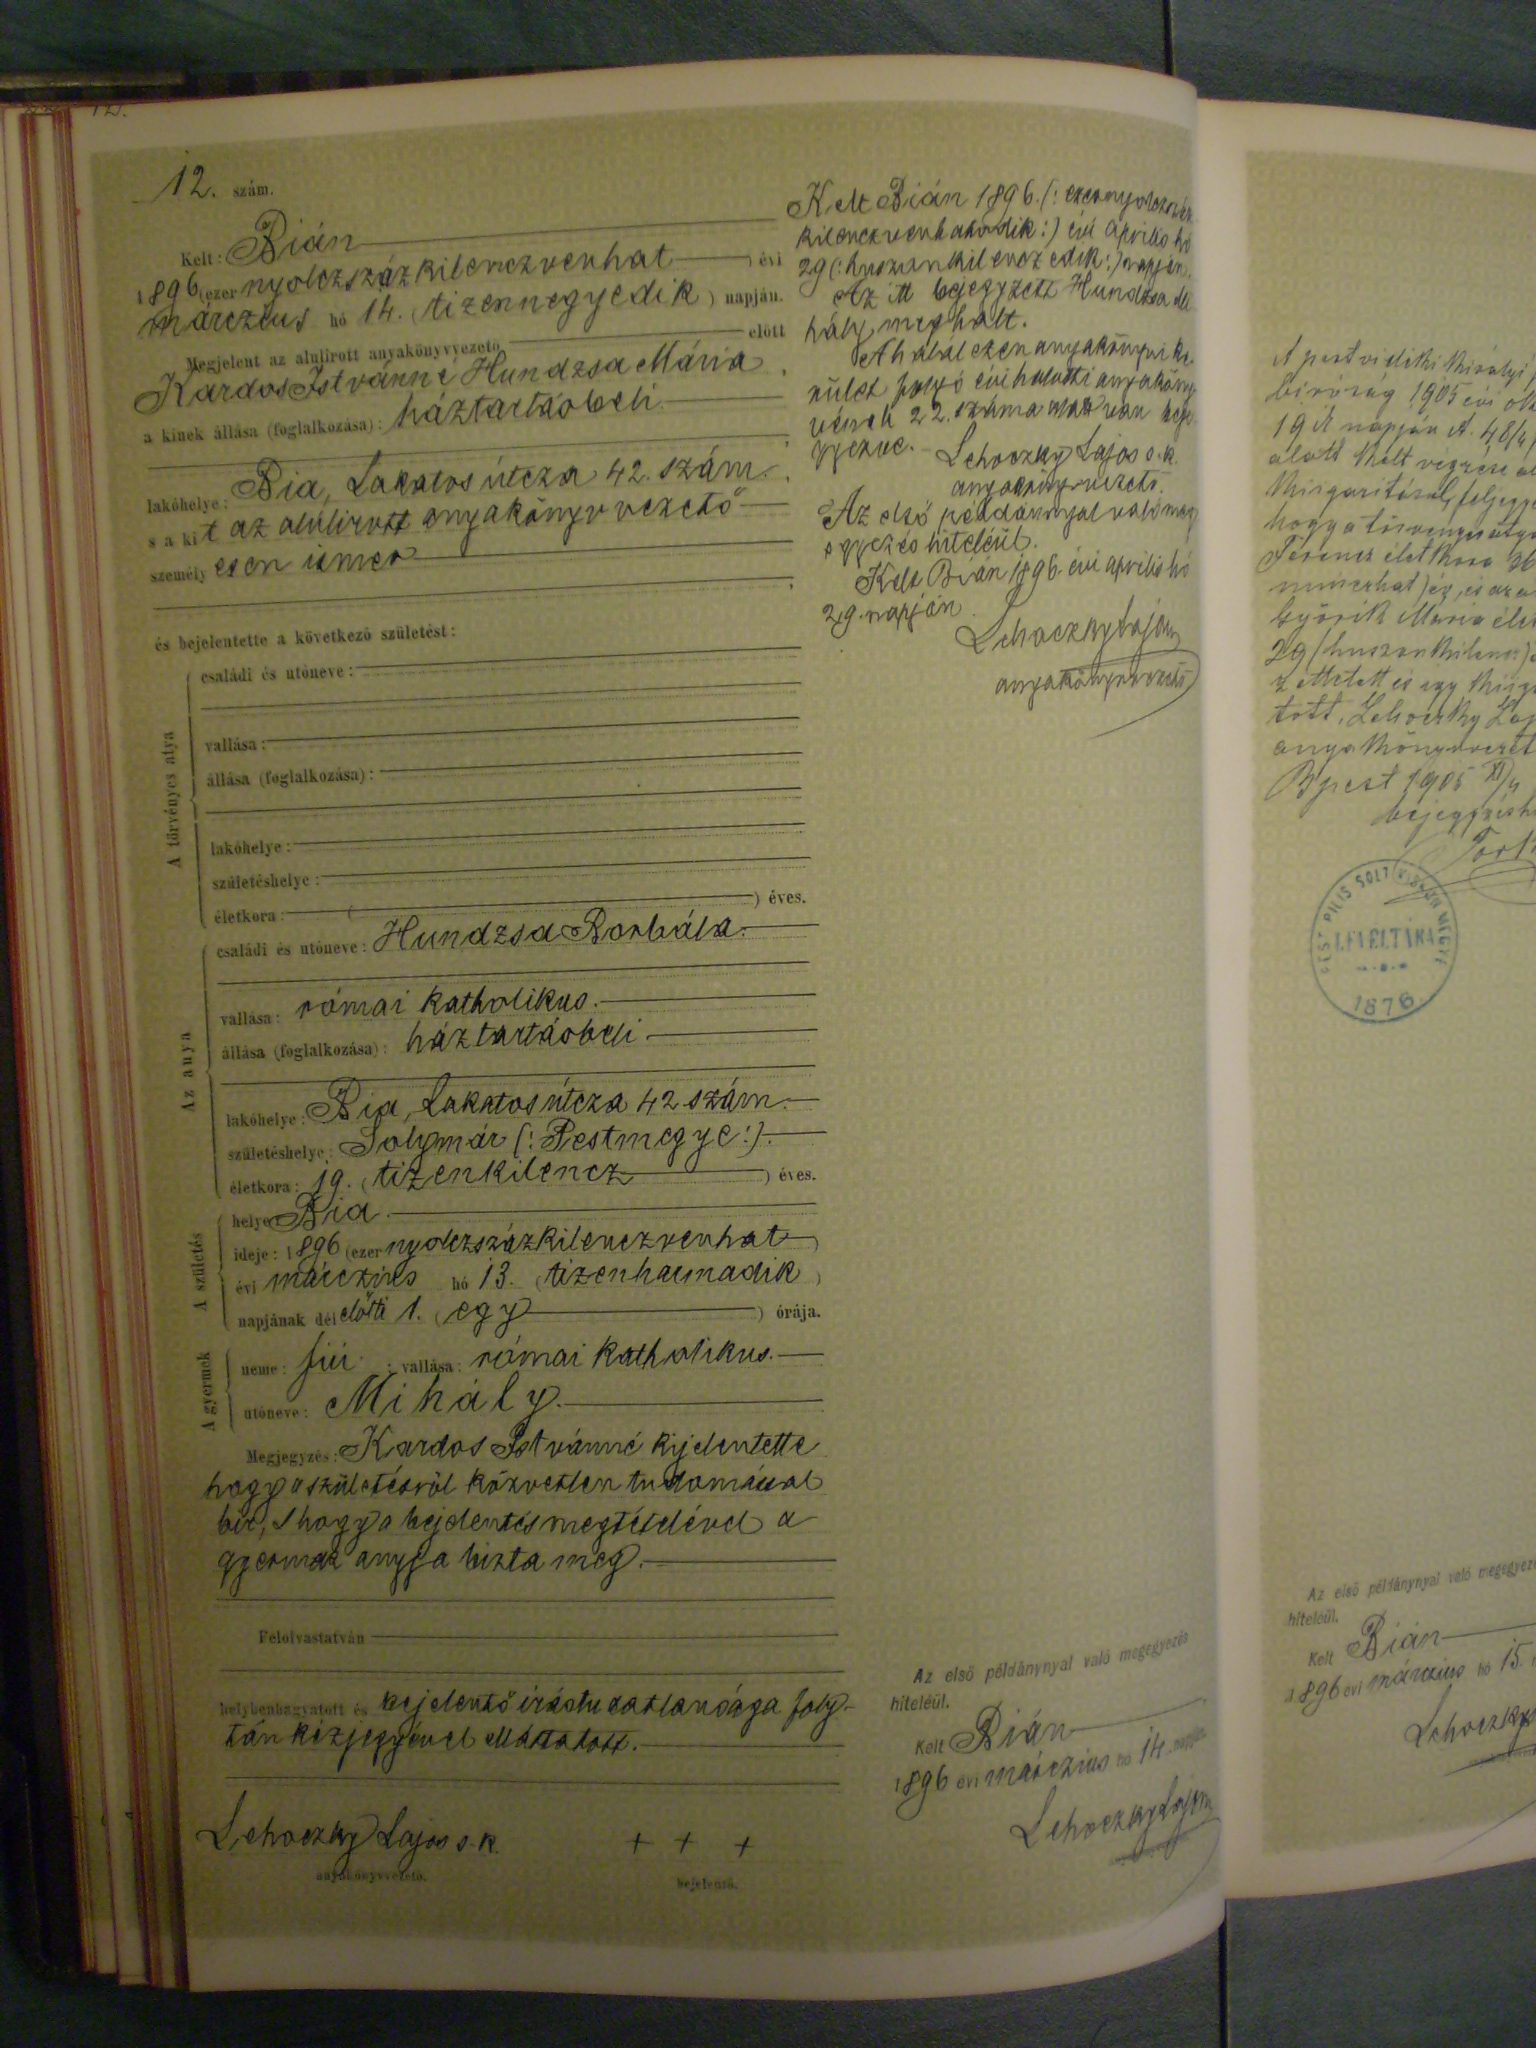 12. szám.
Kelt: Bián
1896 (ezer nyolczszázkilenczvenhat) évi
márczius hó 14. (tizennegyedik) napján.
Megjelent az alulirott anyakönyvvezető előtt
Kardos Istvánné Hundzsa Mária,
a kinek állása (foglalkozása): háztartásbeli
lakóhelye: Bia, Lakatos útcza 42. szám.
s a kit az alúlirott anyakönyvvezető
személyesen ismer
és bejelentette a következő születést:
A törvényes atya
családi és utóneve:
vallása:
állása (foglalkozása):
lakóhelye:
születéshelye:
életkora: ( ) éves.
Az anya
családi és utóneve: Hundzsa Borbála.
vallása: római katholikus.
állása (foglalkozása): háztartásbeli
lakóhelye: Bia, Lakatos útcza 42 szám.
születéshelye: Solymár (: Pestmegye :).
életkora: 19. (tizenkilencz) éves.
A születés
helye: Bia.
ideje: 1896 (ezer nyolczszázkilenczvenhat)
évi márczius hó 13. (tizenharmadik)
napjának dél előtti 1. (egy) órája.
A gyermek
neme: fiú; vallása: római katholikus.
utóneve: Mihály.
Megjegyzés: Kardos Istvánné kijelentette
hogy a születésről közvetlen tudomással
bir, s hogy a bejelentés megtételével a
gyermek anyja bizta meg.
Felolvastatván
helybenhagyatott és bejelentő irástudatlansága foly-
tán kézjegyével elláttatott.
Lehoczky Lajos s. k. + + +
anyakönyvvezető. bejelentő.
Kelt Bián 1896. (: ezernyolczszáz
kilenczvenhatodik :) évi április hó
29 (: huszonkilenczedik :) napján.
Az itt bejegyzett Hundzsa Mi-
hály meghalt.
A halál ezen anyakönyvi ke-
rület folyó évi halotti anyaköny-
vének 22. száma alatt van bejegy-
gyezve. Lehoczky Lajos s. k.
anyakönyvvezető.
Az első példánnyal való meg
egyezés hiteléül.
Kelt Bián 1896. évi április hó
29. napján.
Lehoczky Lajos
anyakönyvvezető
Az első példánynyal való megegyezés
hiteléül.
Kelt Bián
1896 évi márczius hó 14. napján
Lehoczky Lajos
A pestvidéki királyi
biróság 1905 évi
19 ik napján
alatt kelt végzése
hogy a törvényes
Ferencz életkora 36
Györik Mária
29 (huszonkilencz)
tott, Lehoczky
anyakönyvvezet
Bpest 1905 XI/4
PEST PILIS SOLT KISKUN MEGYE
LEVÉLTÁRA
1876
Az első példánynyal való megegyezés
hiteléül.
Kelt Bián
1896 évi márczius hó 15.
Lehoczky